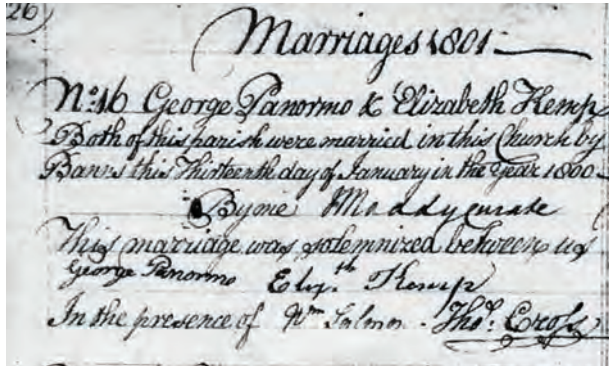 26
Marriages 1801
No. 16 George Panormo & Elizabeth Kemp
Both of this parish were married in this Church by
Banns this Thirteenth day of January in the Year 1800
By me Maddy curate
This marriage was solemnized between us
George Panormo Eliz.th Kemp
In the presence of Wm Salmon. Thos. Cross